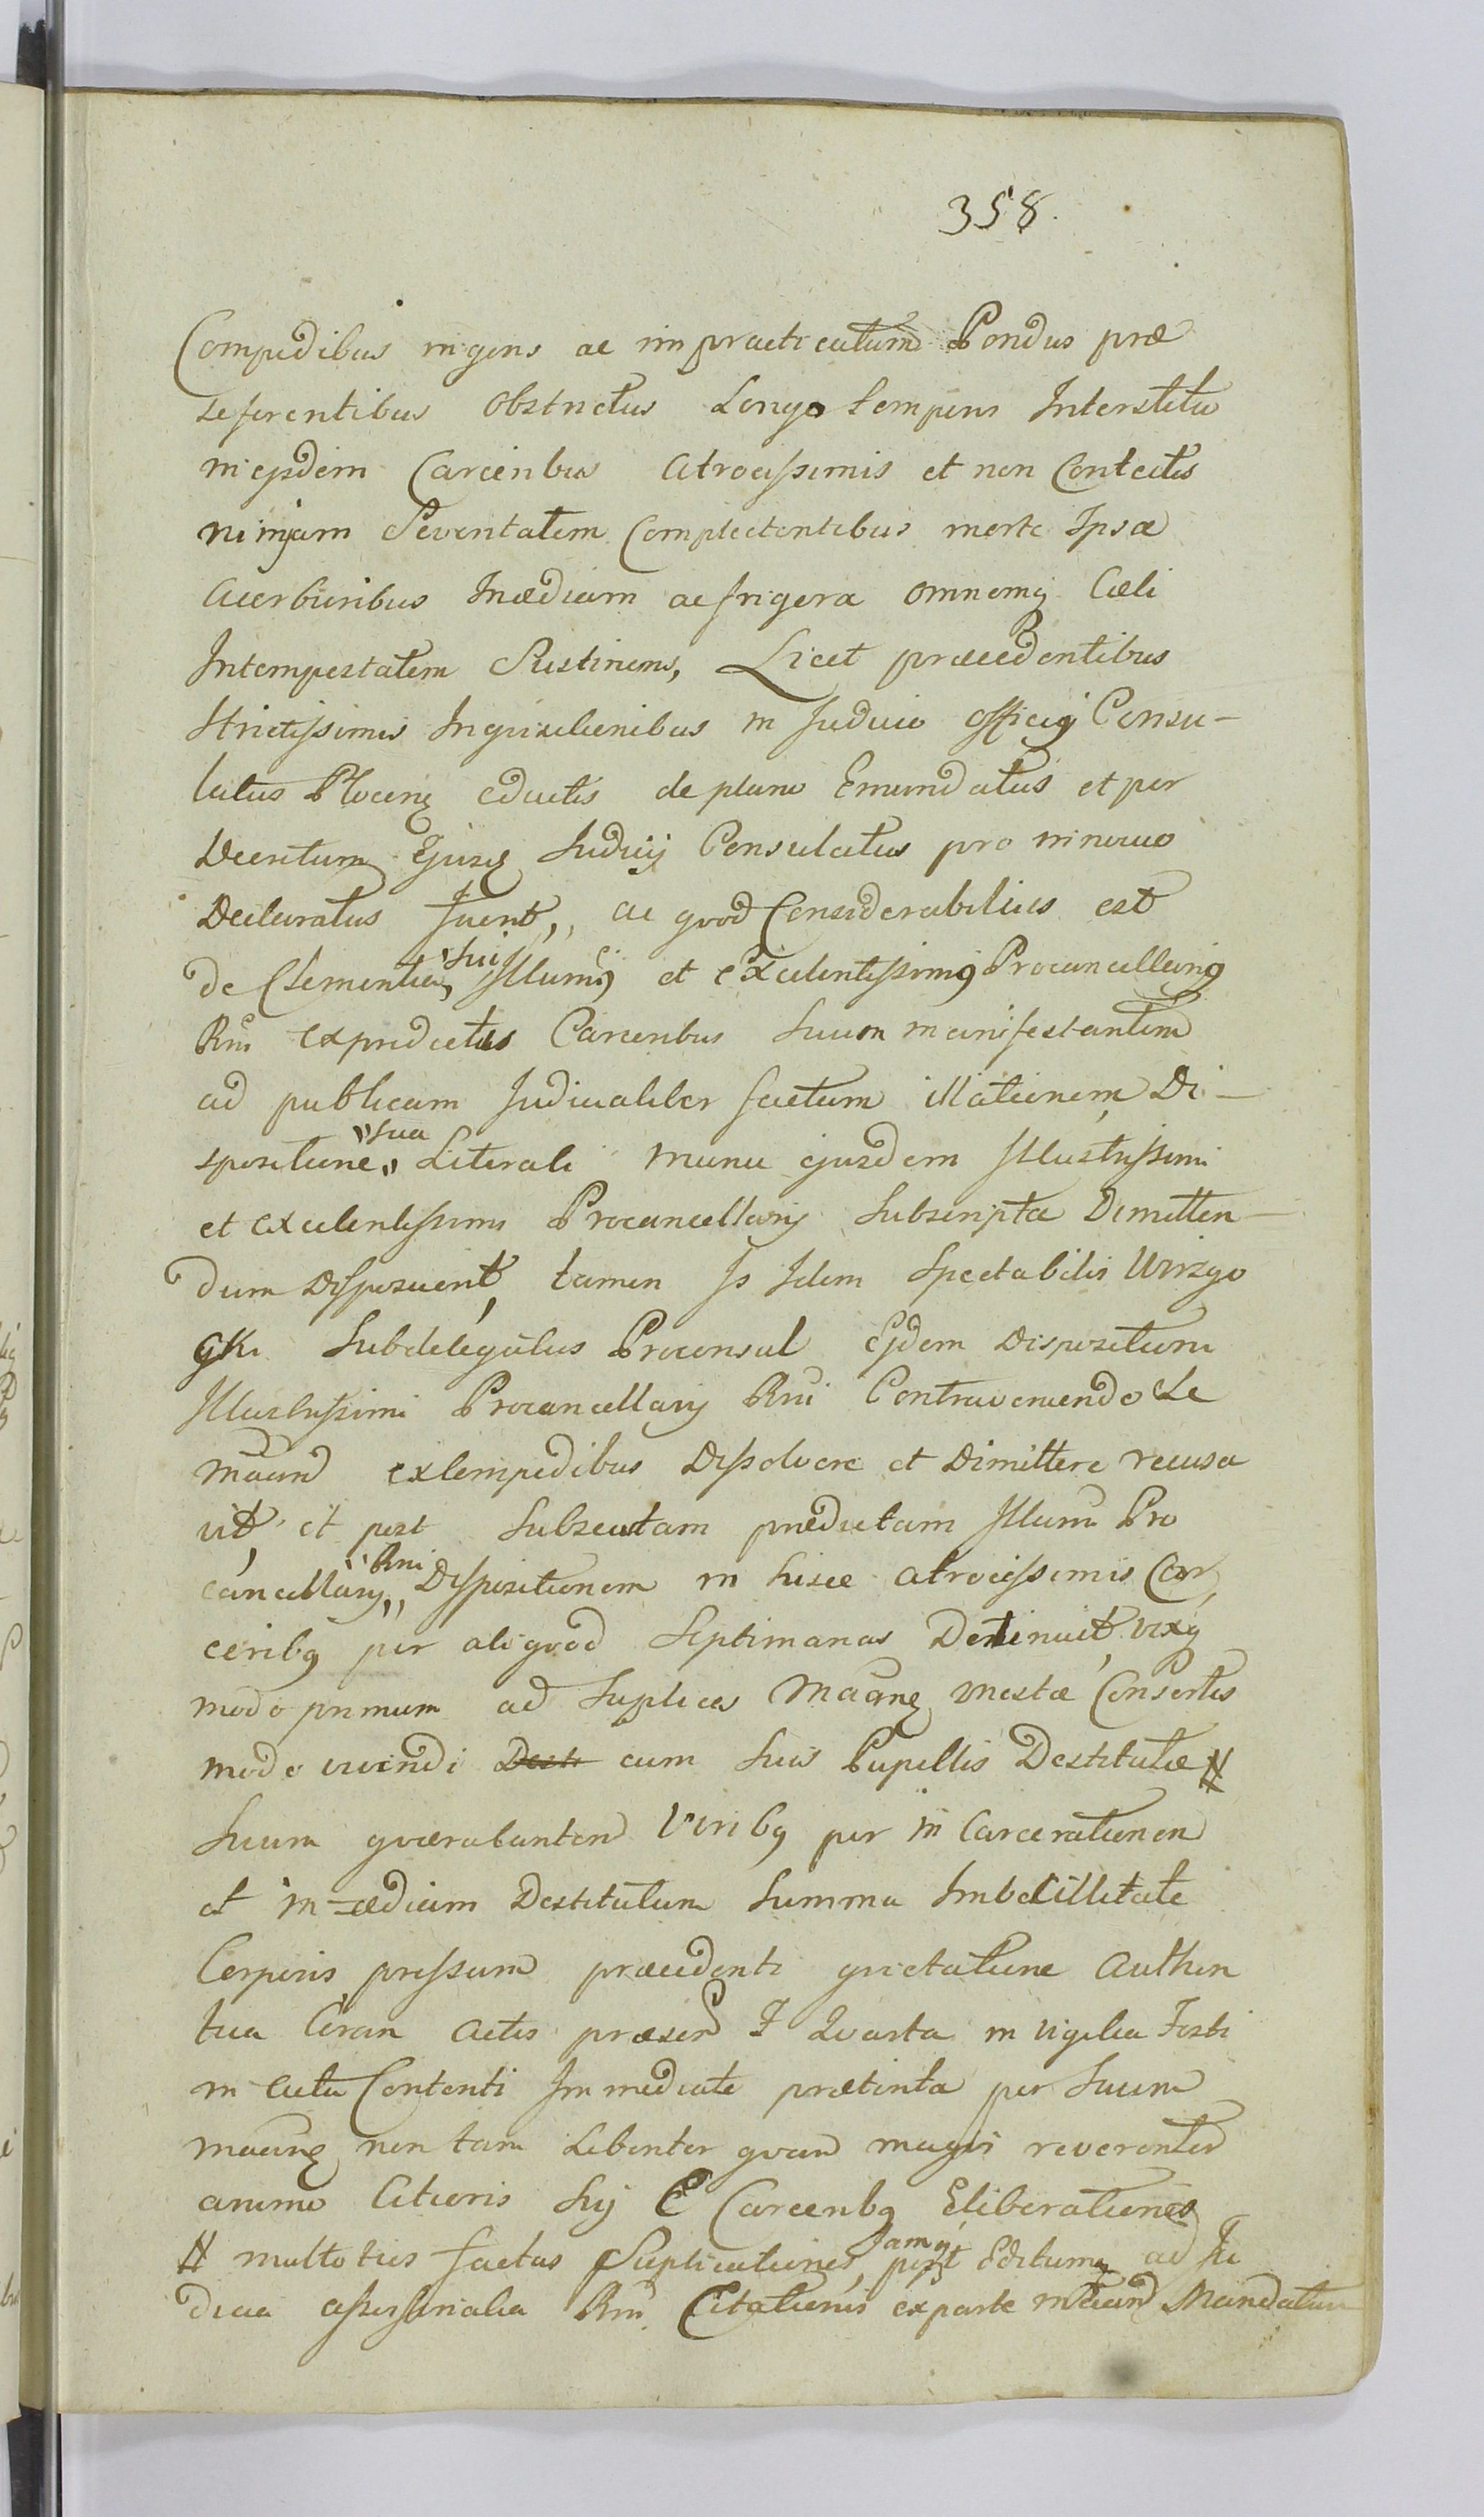 358.
Compedibus ingens ac impracticatum Pondus præ
seferentibus obstrictus Longo temporis Interstitio
in ejsdem Carceribus Atrocissimis et non Contectis
nimjam Severitatem Complectentibus morte Ipsa
Acerbioribus Inædiam ac frigora omnemq Cæli
Intemperstatem Sustinens, Licet præcedentibus
Strictissimis Inquisitionibus in Judicio Officij Consu-
latus Plocen eductis de plano Emundatus et per
Decretum Ejusd Judicij Consulatus pro innocuo
Declaratus fuerit,, ac qvod Considerabilius est
de Clementia „Sui„ Illumi et Excelentissimi Procancellarij
Rni ex predictis Carceribus Suum manifestantem
ad publicam Judicialiter factam illationem Di-
spositione „sua„ Literali manu ejusdem Illustrissimi
et excelentissimi Procancellarij Subscripta Dimitten-
dum Disposuerit, tamen Is Idem Spectabilis Wirzyo
gki Subdelegatus Proconsul Ejdem Dispositioni
Illustrissimi Procancellarij Rni Contraveniendo Se
maand ex Compedibus Dissolvere et Dimittere recusa
vit, et post Subsecutam predictam Illum Pro
cancellarij „Rni„ Dispositionem in hisce atrocissimis Car
ceribq per aliqvod Septimanas Detinuit, vixq
modo primum ad Suplices Maang mestæ Consortis
modo vivendi Desti cum Suis Pupillis Destitutæ #
Suum qværulantem Viribq per in Carcerationem
et in-ædiam Destitutum Summa Imbecillitate
Corporis pressum præcedenti qvietatione Authen
tica Coram Actis præsen F Qvarta in vigilia Festi
in cute Contenti Immediate prætinta per Suum
maang non tam Libenter qvam magis reverenter
animo Citioris Sij E Carceribq Eliberationes
# multoties factas Suplicationes, jamq post Editum ad Ju
dicia assessorialia Rni Citationis ex parte maand Mandatum